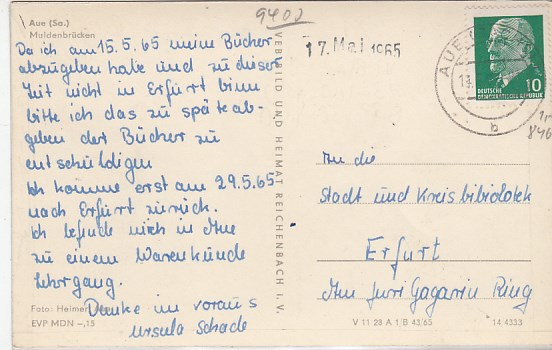 Aue (Sa.)
Muldenbrücken
Da ich am 15.5.65 meine Bücher
abzugeben habe und zu dieser
Zeit nicht in Erfurt binn
bitte ich das zu späte ab-
geben der Bücher zu
entschuldigen
Ich komme erst am 29.5.65
nach Erfurt zurück.
Ich befinde mich in Aue
zu einem Warenkunde
Lehrgang.
Danke im voraus
Ursula Schade
Foto: Heimer
EVP MDN –,15
VEB BILD UND HEIMAT REICHENBACH I. V.
9400
17. Mai 1965
AUE
b
DEUTSCHE
DEMOKRATISCHE REPUBLIK
10
An die
Stadt und Kreisbibiolotek
Erfurt
Am Juri Gagarin Ring
V 11 28 A 1 B 43/65 14 4333